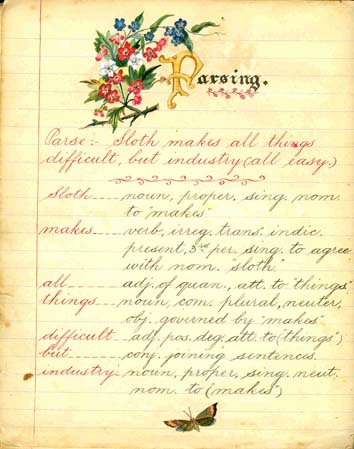 Parsing.
Parse:- Sloth makes all things
difficult, but industry (all easy.)
Sloth.... noun, proper, sing. nom.
to "makes"
makes.... verb, irreg. trans. indic.
present, 3rd per. sing. to agree
with nom. "sloth."
all.... adj. of quan., att. to "things"
things.... noun, com. plural, neuter,
obj. governed by "makes"
difficult.. adj. pos. deg. att. to ("things")
but.... conj. joining sentences.
industry. noun, proper, sing. neut.
nom. to (makes")